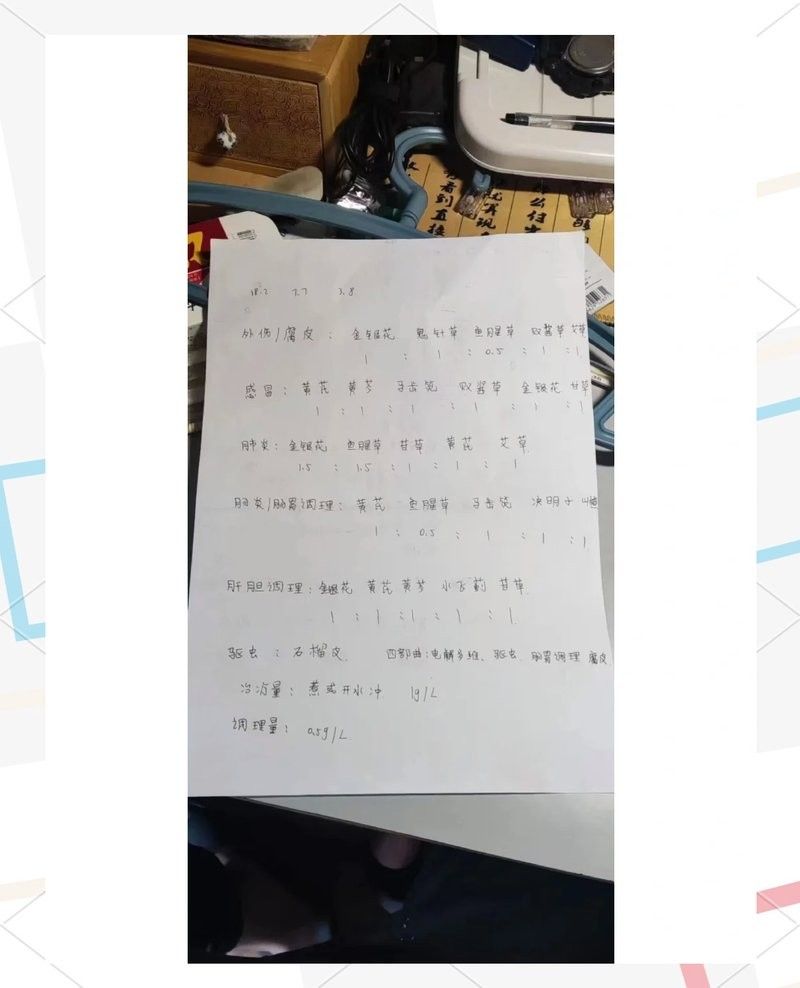 看到直接
18.2 7.7 3.8
外伤/腐皮: 金银花 鬼针草 鱼腥草 败酱草 艾草
1 : 1 : 0.5 : 1 : 1
感冒: 黄芪 黄芩 马齿苋 败酱草 金银花 甘草
1 : 1 : 1 : 1 : 1 : 1
肺炎: 金银花 鱼腥草 甘草 黄芪 艾草
1.5 : 1.5 : 1 : 1 : 1
肠炎/肠胃调理: 黄芪 鱼腥草 马齿苋 决明子 山楂
1 : 0.5 : 1 : 1 : 1
肝胆调理: 金银花 黄芪 黄芩 水飞蓟 甘草
1 : 1 : 1 : 1 : 1
驱虫: 石榴皮. 四部曲:电解多维、驱虫、肠胃调理 腐皮
治疗量: 煮或开水冲 1g/L
调理量: 0.5g/L